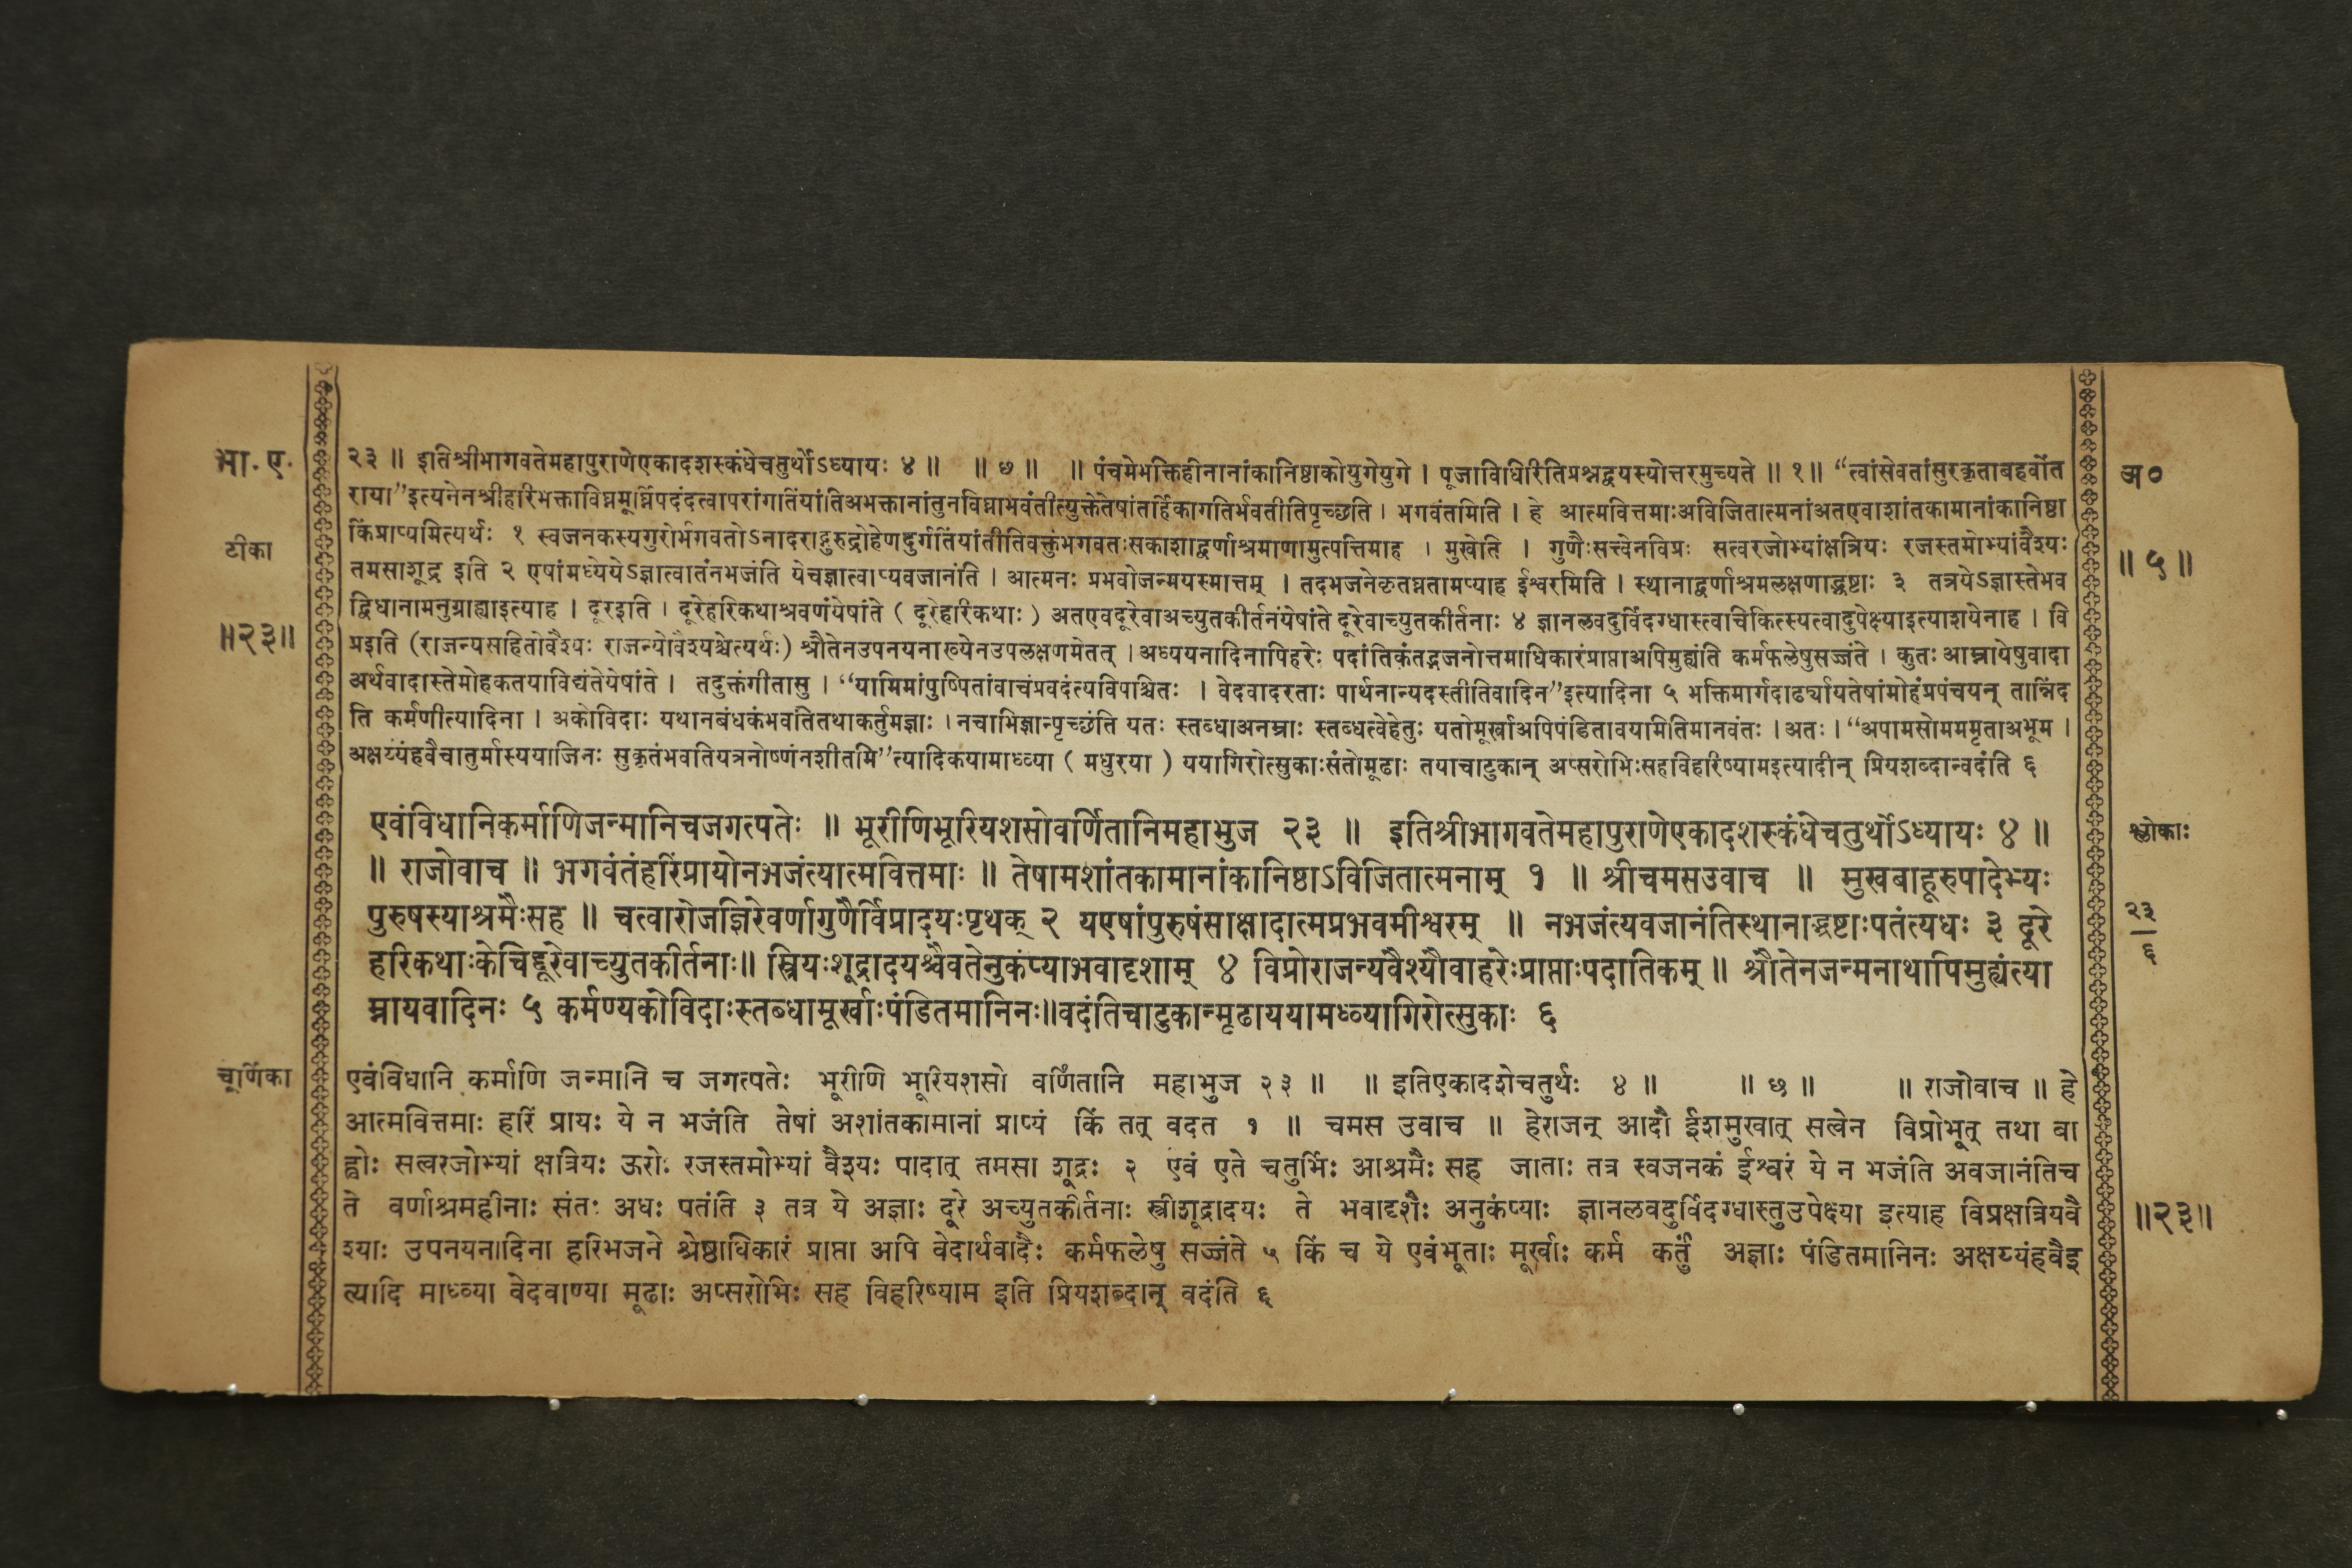 भा. ए.
२३ ॥ इतिश्रीभागवतेमहापुराणेएकादशस्कंधेचतुर्थोऽध्यायः ४ ॥ ॥ ७ ॥ ॥ पंचमेभक्तिहीनानांकानिष्ठाकोयुगेयुगे । पूजाविधिरितिप्रश्नद्वयस्योत्तरमुच्यते ॥ १ ॥ “त्वांसेवतांसुरकृताबहवोंत
अ०
राया”इत्यनेनश्रीहरिभक्ताविघ्नमूर्ध्निपदंदत्वापरांगतिंयांतिअभक्तानांतुनविघ्नाभवंतीत्युक्तेतेषांतर्हिकागतिर्भवतीतिपृच्छति । भगवंतमिति । हे आत्मवित्तमाःअविजितात्मनांअतएवाशांतकामानांकानिष्ठा
टीका
किंप्राप्यमित्यर्थः १ स्वजनकस्यगुरोर्भगवतोऽनादराद्गुरुद्रोहेणदुर्गतिंयांतीतिवक्तुंभगवतःसकाशाद्वर्णाश्रमाणामुत्पत्तिमाह । मुखेति । गुणैःसत्त्वेनविप्रः सत्वरजोभ्यांक्षत्रियः रजस्तमोभ्यांवैश्यः
॥ ५ ॥
तमसाशूद्र इति २ एषांमध्येयेऽज्ञात्वातंनभजंति येचज्ञात्वाप्यवजानंति । आत्मनः प्रभवोजन्मयस्मात्तम् । तदभजनेकृतघ्नतामप्याह ईश्वरमिति । स्थानाद्वर्णाश्रमलक्षणाद्भ्रष्टाः ३ तत्रयेऽज्ञास्तेभव
द्विधानामनुग्राह्याइत्याह । दूरइति । दूरेहरिकथाश्रवणंयेषांते ( दूरेहरिकथाः ) अतएवदूरेवाअच्युतकीर्तनंयेषांते दूरेवाच्युतकीर्तनाः ४ ज्ञानलवदुर्विदग्धास्त्वचिकित्स्यत्वादुपेक्ष्याइत्याशयेनाह । वि
॥२३॥
प्रइति (राजन्यसहितोवैश्यः राजन्योवैश्यश्चेत्यर्थः) श्रौतेनउपनयनाख्येनउपलक्षणमेतत् । अध्ययनादिनापिहरेः पदांतिकंतद्भजनोत्तमाधिकारंप्राप्ताअपिमुह्यंति कर्मफलेषुसज्जंते । कुतः आम्नायेषुवादा
अर्थवादास्तेमोहकतयाविद्यंतेयेषांते । तदुक्तंगीतासु । “यामिमांपुष्पितांवाचंप्रवदंत्यविपश्चितः । वेदवादरताः पार्थनान्यदस्तीतिवादिन”इत्यादिना ५ भक्तिमार्गदार्ढ्यायतेषांमोहंप्रपंचयन् तान्निंद
ति कर्मणीत्यादिना । अकोविदाः यथानबंधकंभवतितथाकर्तुमज्ञाः । नचाभिज्ञान्पृच्छंति यतः स्तब्धाअनम्राः स्तब्धत्वेहेतुः यतोमूर्खाअपिपंडितावयमितिमानवंतः । अतः । “अपामसोमममृताअभूम ।
अक्षय्यंहवैचातुर्मास्ययाजिनः सुकृतंभवतियत्रनोष्णंनशीतमि”त्यादिकयामाध्व्या ( मधुरया ) ययागिरोत्सुकाःसंतोमूढाः तयाचाटुकान् अप्सरोभिःसहविहरिष्यामइत्यादीन् प्रियशब्दान्वदंति ६
एवंविधानिकर्माणिजन्मानिचजगत्पतेः ॥ भूरीणिभूरियशसोवर्णितानिमहाभुज २३ ॥ इतिश्रीभागवतेमहापुराणेएकादशस्कंधेचतुर्थोऽध्यायः ४ ॥
श्लोकाः
॥ राजोवाच ॥ भगवंतंहरिंप्रायोनभजंत्यात्मवित्तमाः ॥ तेषामशांतकामानांकानिष्ठाऽविजितात्मनाम् १ ॥ श्रीचमसउवाच ॥ मुखबाहूरुपादेभ्यः
पुरुषस्याश्रमैःसह ॥ चत्वारोजज्ञिरेवर्णागुणैर्विप्रादयःपृथक् २ यएषांपुरुषंसाक्षादात्मप्रभवमीश्वरम् ॥ नभजंत्यवजानंतिस्थानाद्भ्रष्टाःपतंत्यधः ३ दूरे
२३
६
हरिकथाःकेचिद्दूरेवाच्युतकीर्तनाः॥ स्त्रियःशूद्रादयश्चैवतेनुकंप्याभवादृशाम् ४ विप्रोराजन्यवैश्यौवाहरेःप्राप्ताःपदातिकम् ॥ श्रौतेनजन्मनाथापिमुह्यंत्या
म्नायवादिनः ५ कर्मण्यकोविदाःस्तब्धामूर्खाःपंडितमानिनः॥वदंतिचाटुकान्मूढाययामध्व्यागिरोत्सुकाः ६
चूर्णिका
एवंविधानि कर्माणि जन्मानि च जगत्पतेः भूरीणि भूरियशसो वर्णितानि महाभुज २३ ॥ ॥ इतिएकादशेचतुर्थः ४ ॥ ॥ ७ ॥ ॥ राजोवाच ॥ हे
आत्मवित्तमाः हरिं प्रायः ये न भजंति तेषां अशांतकामानां प्राप्यं किं तत् वदत १ ॥ चमस उवाच ॥ हेराजन् आदौ ईशमुखात् सत्वेन विप्रोभूत् तथा बा
ह्वोः सत्वरजोभ्यां क्षत्रियः ऊरोः रजस्तमोभ्यां वैश्यः पादात् तमसा शूद्रः २ एवं एते चतुर्भिः आश्रमैः सह जाताः तत्र स्वजनकं ईश्वरं ये न भजंति अवजानंतिच
ते वर्णाश्रमहीनाः संतः अधः पतंति ३ तत्र ये अज्ञाः दूरे अच्युतकीर्तनाः स्त्रीशूद्रादयः ते भवादृशैः अनुकंप्याः ज्ञानलवदुर्विदग्धास्तुउपेक्ष्या इत्याह विप्रक्षत्रियवै
॥२३॥
श्याः उपनयनादिना हरिभजने श्रेष्ठाधिकारं प्राप्ता अपि वेदार्थवादैः कर्मफलेषु सज्जंते ५ किं च ये एवंभूताः मूर्खाः कर्म कर्तुं अज्ञाः पंडितमानिनः अक्षय्यंहवैइ
त्यादि माध्व्या वेदवाण्या मूढाः अप्सरोभिः सह विहरिष्याम इति प्रियशब्दान् वदंति ६